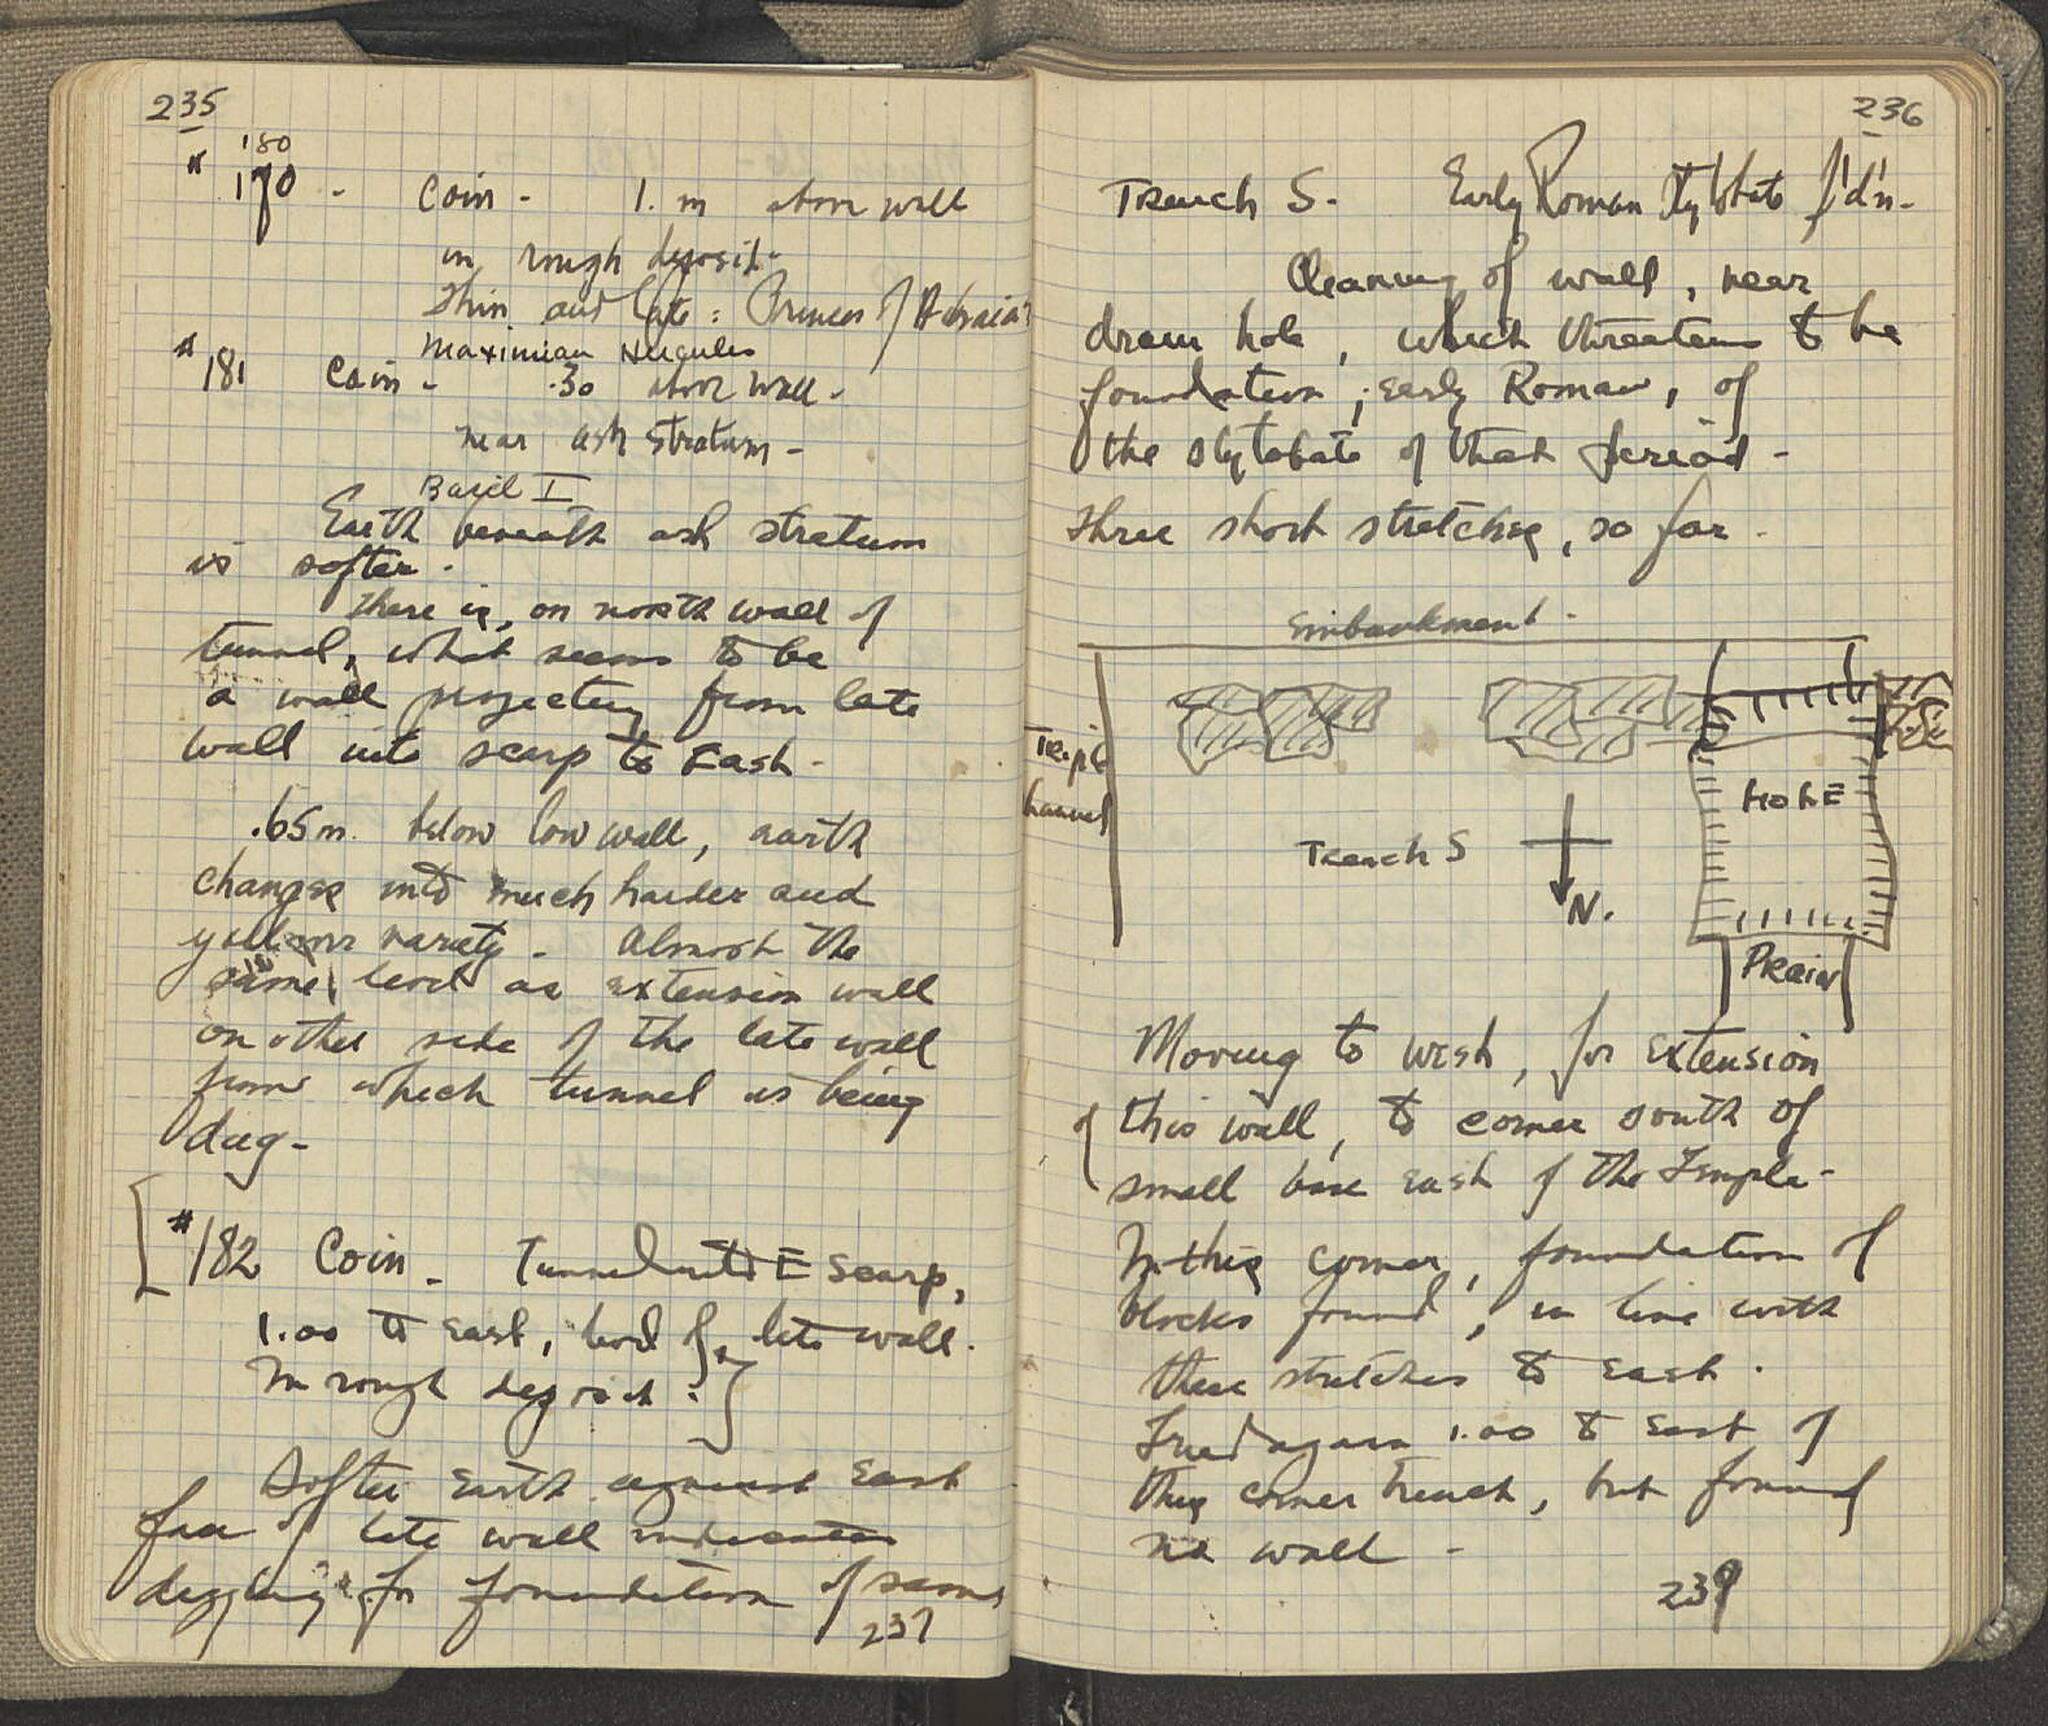 235
180
# 170 - Coin - 1. m above wall
in rough deposit -
Thin and late : Princes of Achaia?
Maximian Hercules
# 181 Coin - .30 above wall -
near ash stratum -
Basil I
Earth beneath ash stratum
is softer -
There is, on north wall of
tunnel, what seems to be
a wall projecting from late
wall into scarp to East -
.65 m. below low wall, earth
changes into much harder and
yellower variety - Almost the
same level as extension wall
on other side of the late wall
from which tunnel is being
dug -
[ # 182 Coin - Tunnel into E scarp,
1.00 to east, level of late wall.
In rough deposit.
Softer earth against East
face of late wall indicates
digging for foundation of same
237
236
Trench S. Early Roman Stylobate f'd'n -
Cleaning of wall, near
drain hole, which threatens to be
foundation, early Roman, of
the stylobate of that period -
Three short stretches, so far -
Embankment -
Triple
Channel
HOLE
Trench S
N.
Drain
Moving to west, for extension
of this wall, to corner south of
small base east of the Temple -
In this corner, foundation of
blocks found, in line with
these stretches to east.
Tried again 1.00 to east of
this corner trench, but found
no wall -
239